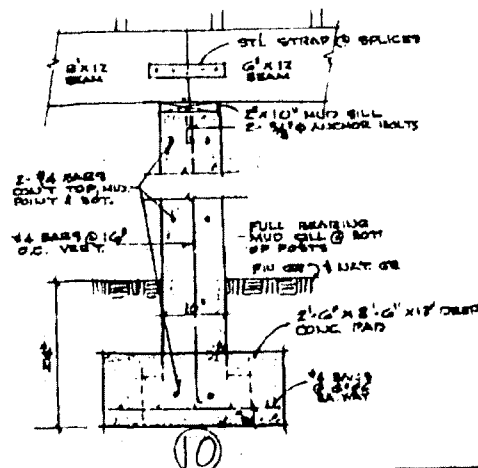 STL STRAP @ SPLICES
6"X12
BEAM
6"X12
BEAM
2"X10" MUD SILL
ANCHOR BOLTS
2- #4 BARS
CON'T TOP, MID.
POINT & BOT.
#4 BARS @ 16"
O.C. VERT.
FULL BEARING
MUD SILL @ BOTT
OF POSTS
FIN GR & NAT. GR
10"
DEEP
CONC. PAD
#4 BARS
EA. WAY
10